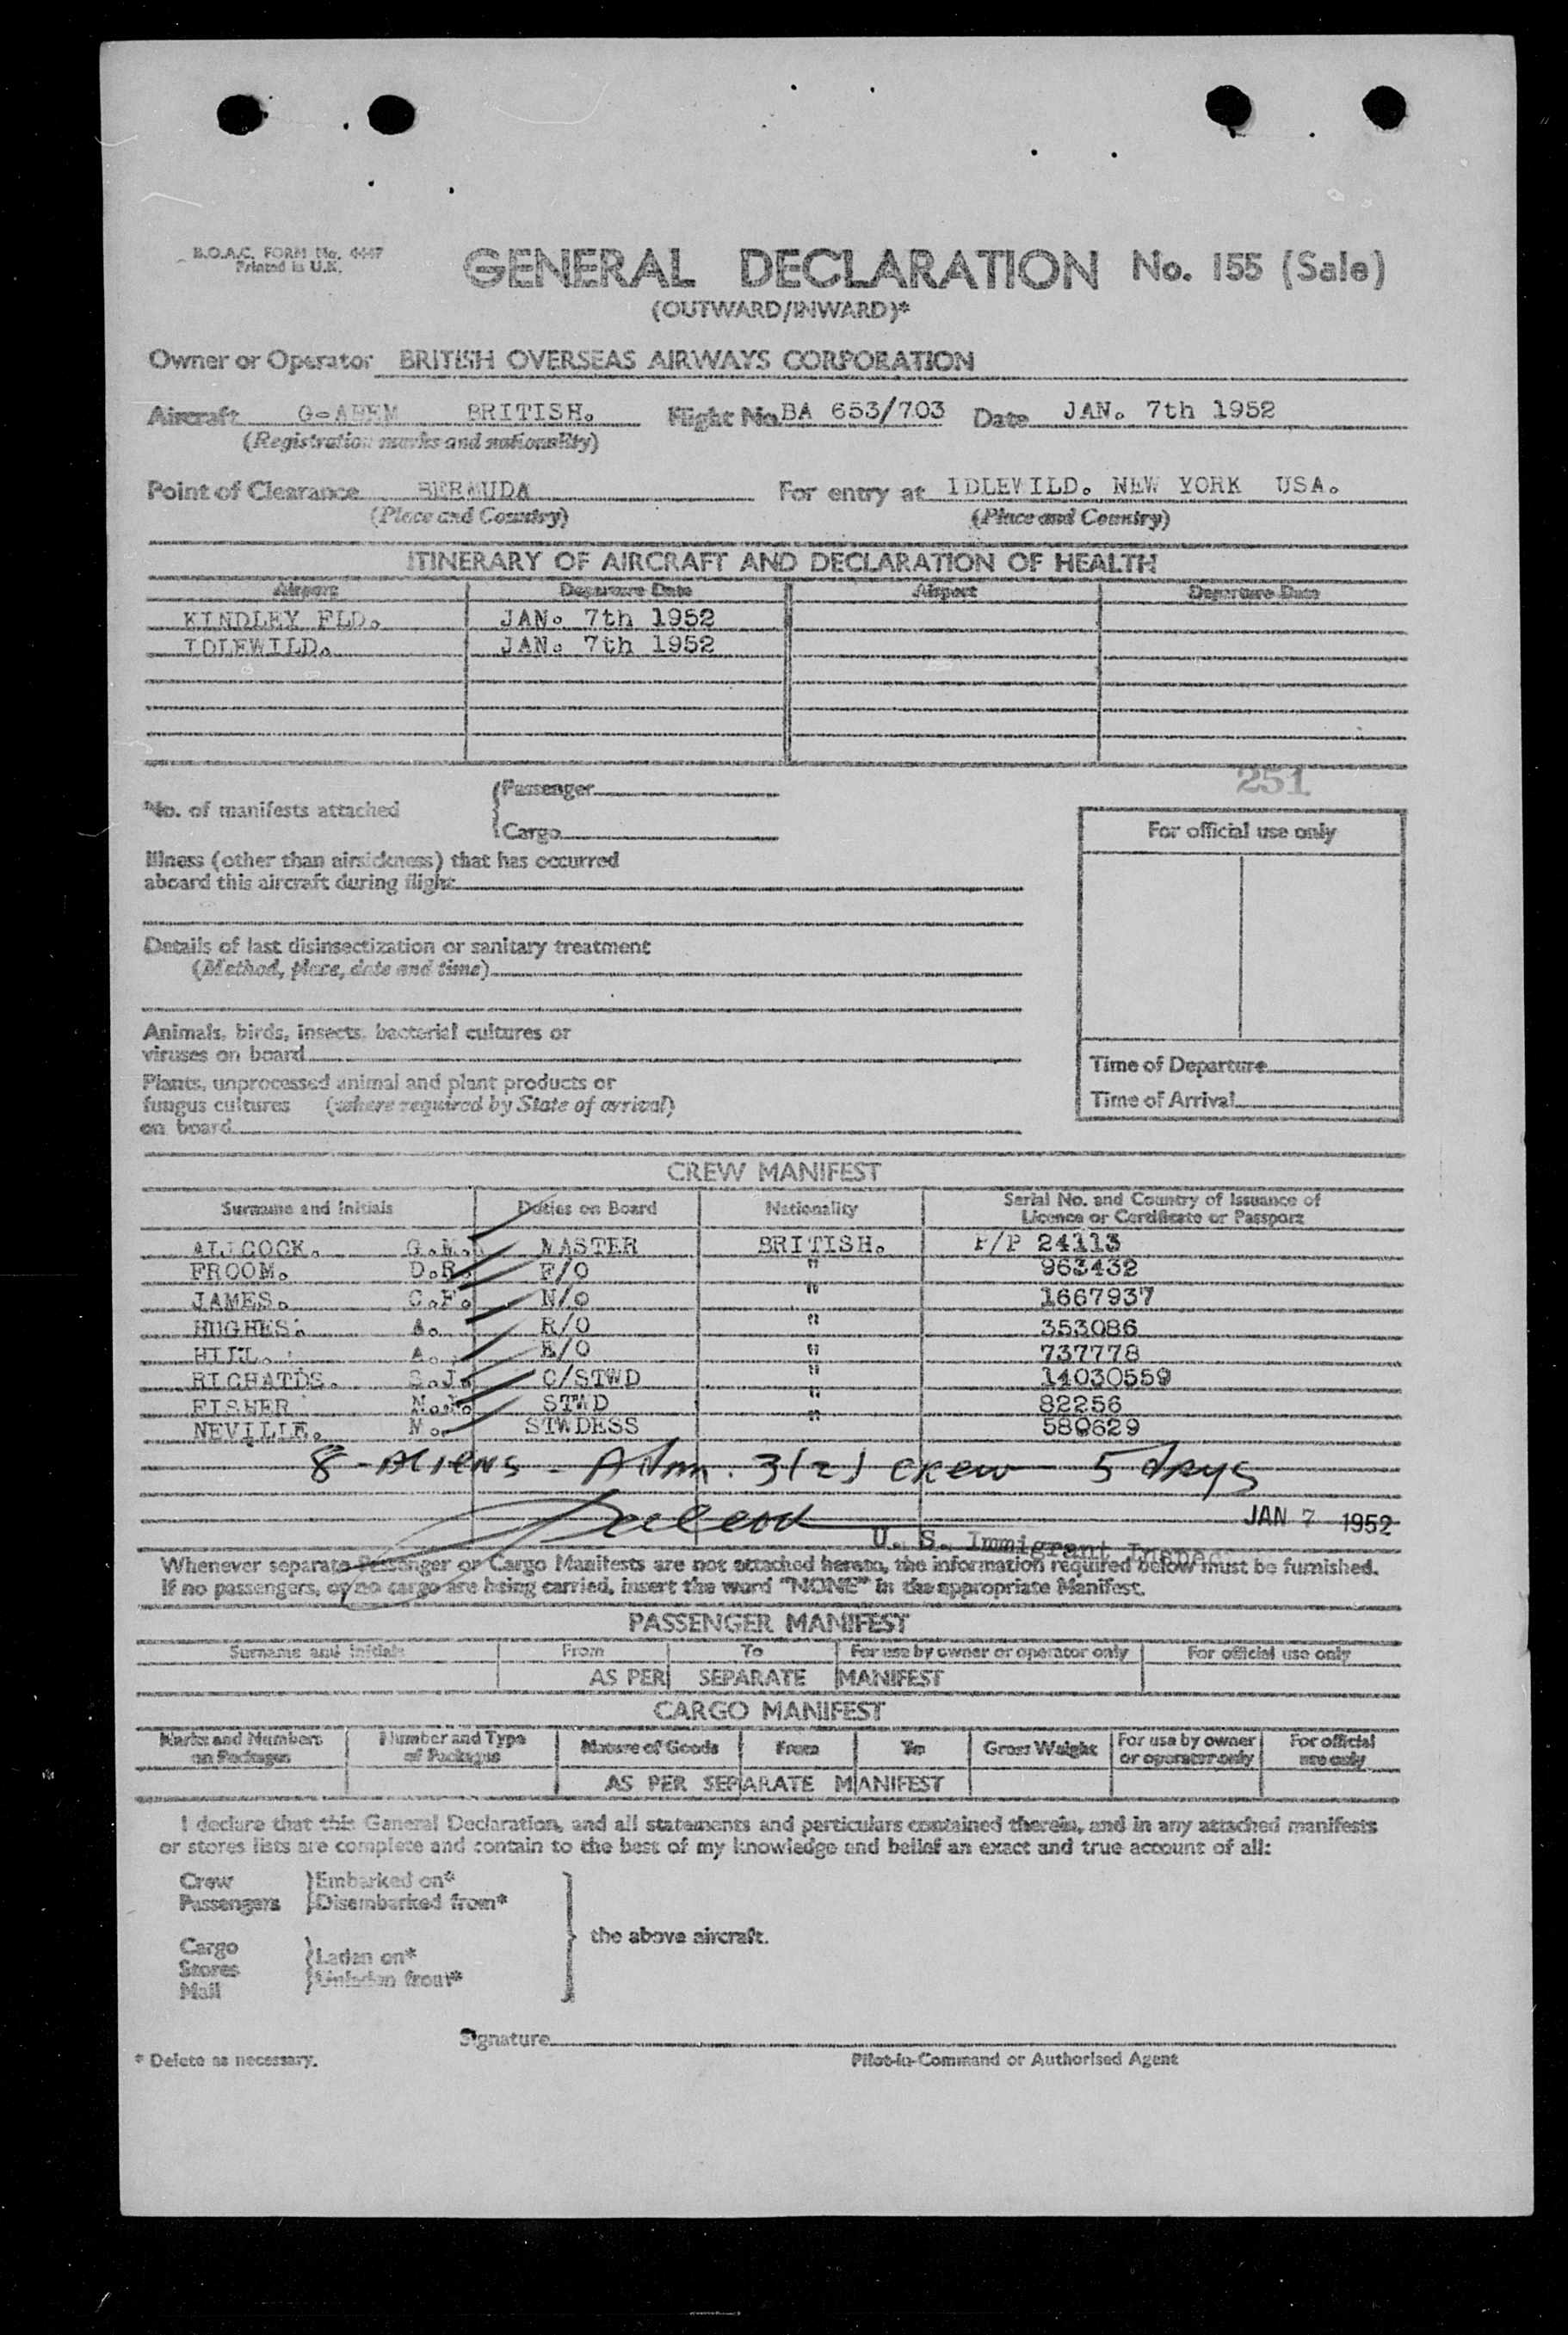 B.O.A.C. FORM No. 4447
Printed in U.K.
GENERAL DECLARATION No. 155 (Sale)
(OUTWARD/INWARD)*
Owner or Operator BRITISH OVERSEAS AIRWAYS CORPORATION
Aircraft BRITISH. Flight No. BA 653/703 Date JAN. 7th 1952
(Registration marks and nationality)
Point of Clearance BERMUDA For entry at IDLEWILD. NEW YORK USA.
(Place and Country) (Place and Country)
ITINERARY OF AIRCRAFT AND DECLARATION OF HEALTH
Airport Departure Date Airport Departure Date
KINDLEY FLD. JAN. 7th 1952
IDLEWILD. JAN. 7th 1952
251
No. of manifests attached {Passenger
{Cargo
For official use only
Illness (other than airsickness) that has occurred
aboard this aircraft during flight
Details of last disinsectization or sanitary treatment
(Method, place, date and time)
Animals, birds, insects, bacterial cultures or
viruses on board
Plants, unprocessed animal and plant products or
fungus cultures (where required by State of arrival)
on board
Time of Departure
Time of Arrival
CREW MANIFEST
Surname and Initials Duties on Board Nationality Serial No. and Country of Issuance of
Licence or Certificate or Passport
ALLCOCK. G.M. MASTER BRITISH. P/P 24113
FROOM. D.R. F/O " 963432
JAMES. C.F. N/O " 1667937
HUGHES. A. R/O " 353086
HILL. A. E/O " 737778
RICHATDS. S.J. C/STWD " 14030559
FISHER STWD " 82256
NEVILLE. M. STWDESS " 580629
8 - Aliens - Adm. 3(2) crew 5 days
JAN 7 1952
U. S. Immigrant
Whenever separate Passenger or Cargo Manifests are not attached hereto, the information required below must be furnished.
If no passengers, or no cargo are being carried, insert the word "NONE" in the appropriate Manifest.
PASSENGER MANIFEST
Surname and Initials From To For use by owner or operator only For official use only
AS PER SEPARATE MANIFEST
CARGO MANIFEST
Marks and Numbers on Packages Number and Type of Packages Nature of Goods From To Gross Weight For use by owner or operator only For official use only
AS PER SEPARATE MANIFEST
I declare that this General Declaration, and all statements and particulars contained therein, and in any attached manifests
or stores lists are complete and contain to the best of my knowledge and belief an exact and true account of all:
Crew }Embarked on*
Passengers }Disembarked from*
the above aircraft.
Cargo
Stores }Laden on*
Mail }Unladen from*
Signature
* Delete as necessary. Pilot-in-Command or Authorised Agent